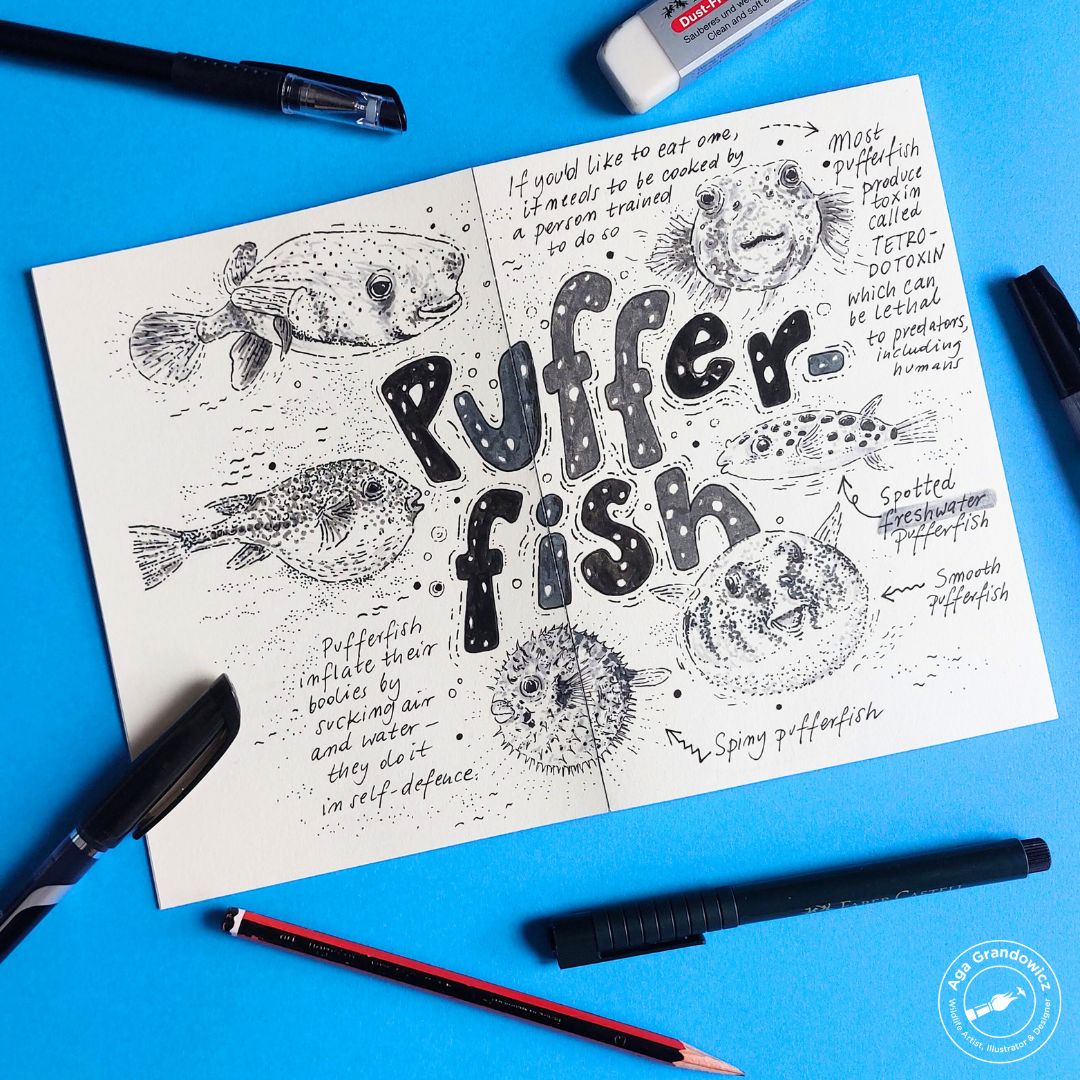 Dust-Fr
Sauberes und we
Clean and soft e
If you'd like to eat one,
it needs to be cooked by
a person trained
to do so
Most
pufferfish
produce
toxin
called
TETRO-
DOTOXIN
which can
be lethal
to predators,
including
humans
Puffer-
fish
Spotted
freshwater
pufferfish
Smooth
pufferfish
Spiny pufferfish
Pufferfish
inflate their
bodies by
sucking air
and water –
they do it
in self-defence.
FABER-CASTELL
Aga Grandowicz
Wildlife Artist, Illustrator & Designer